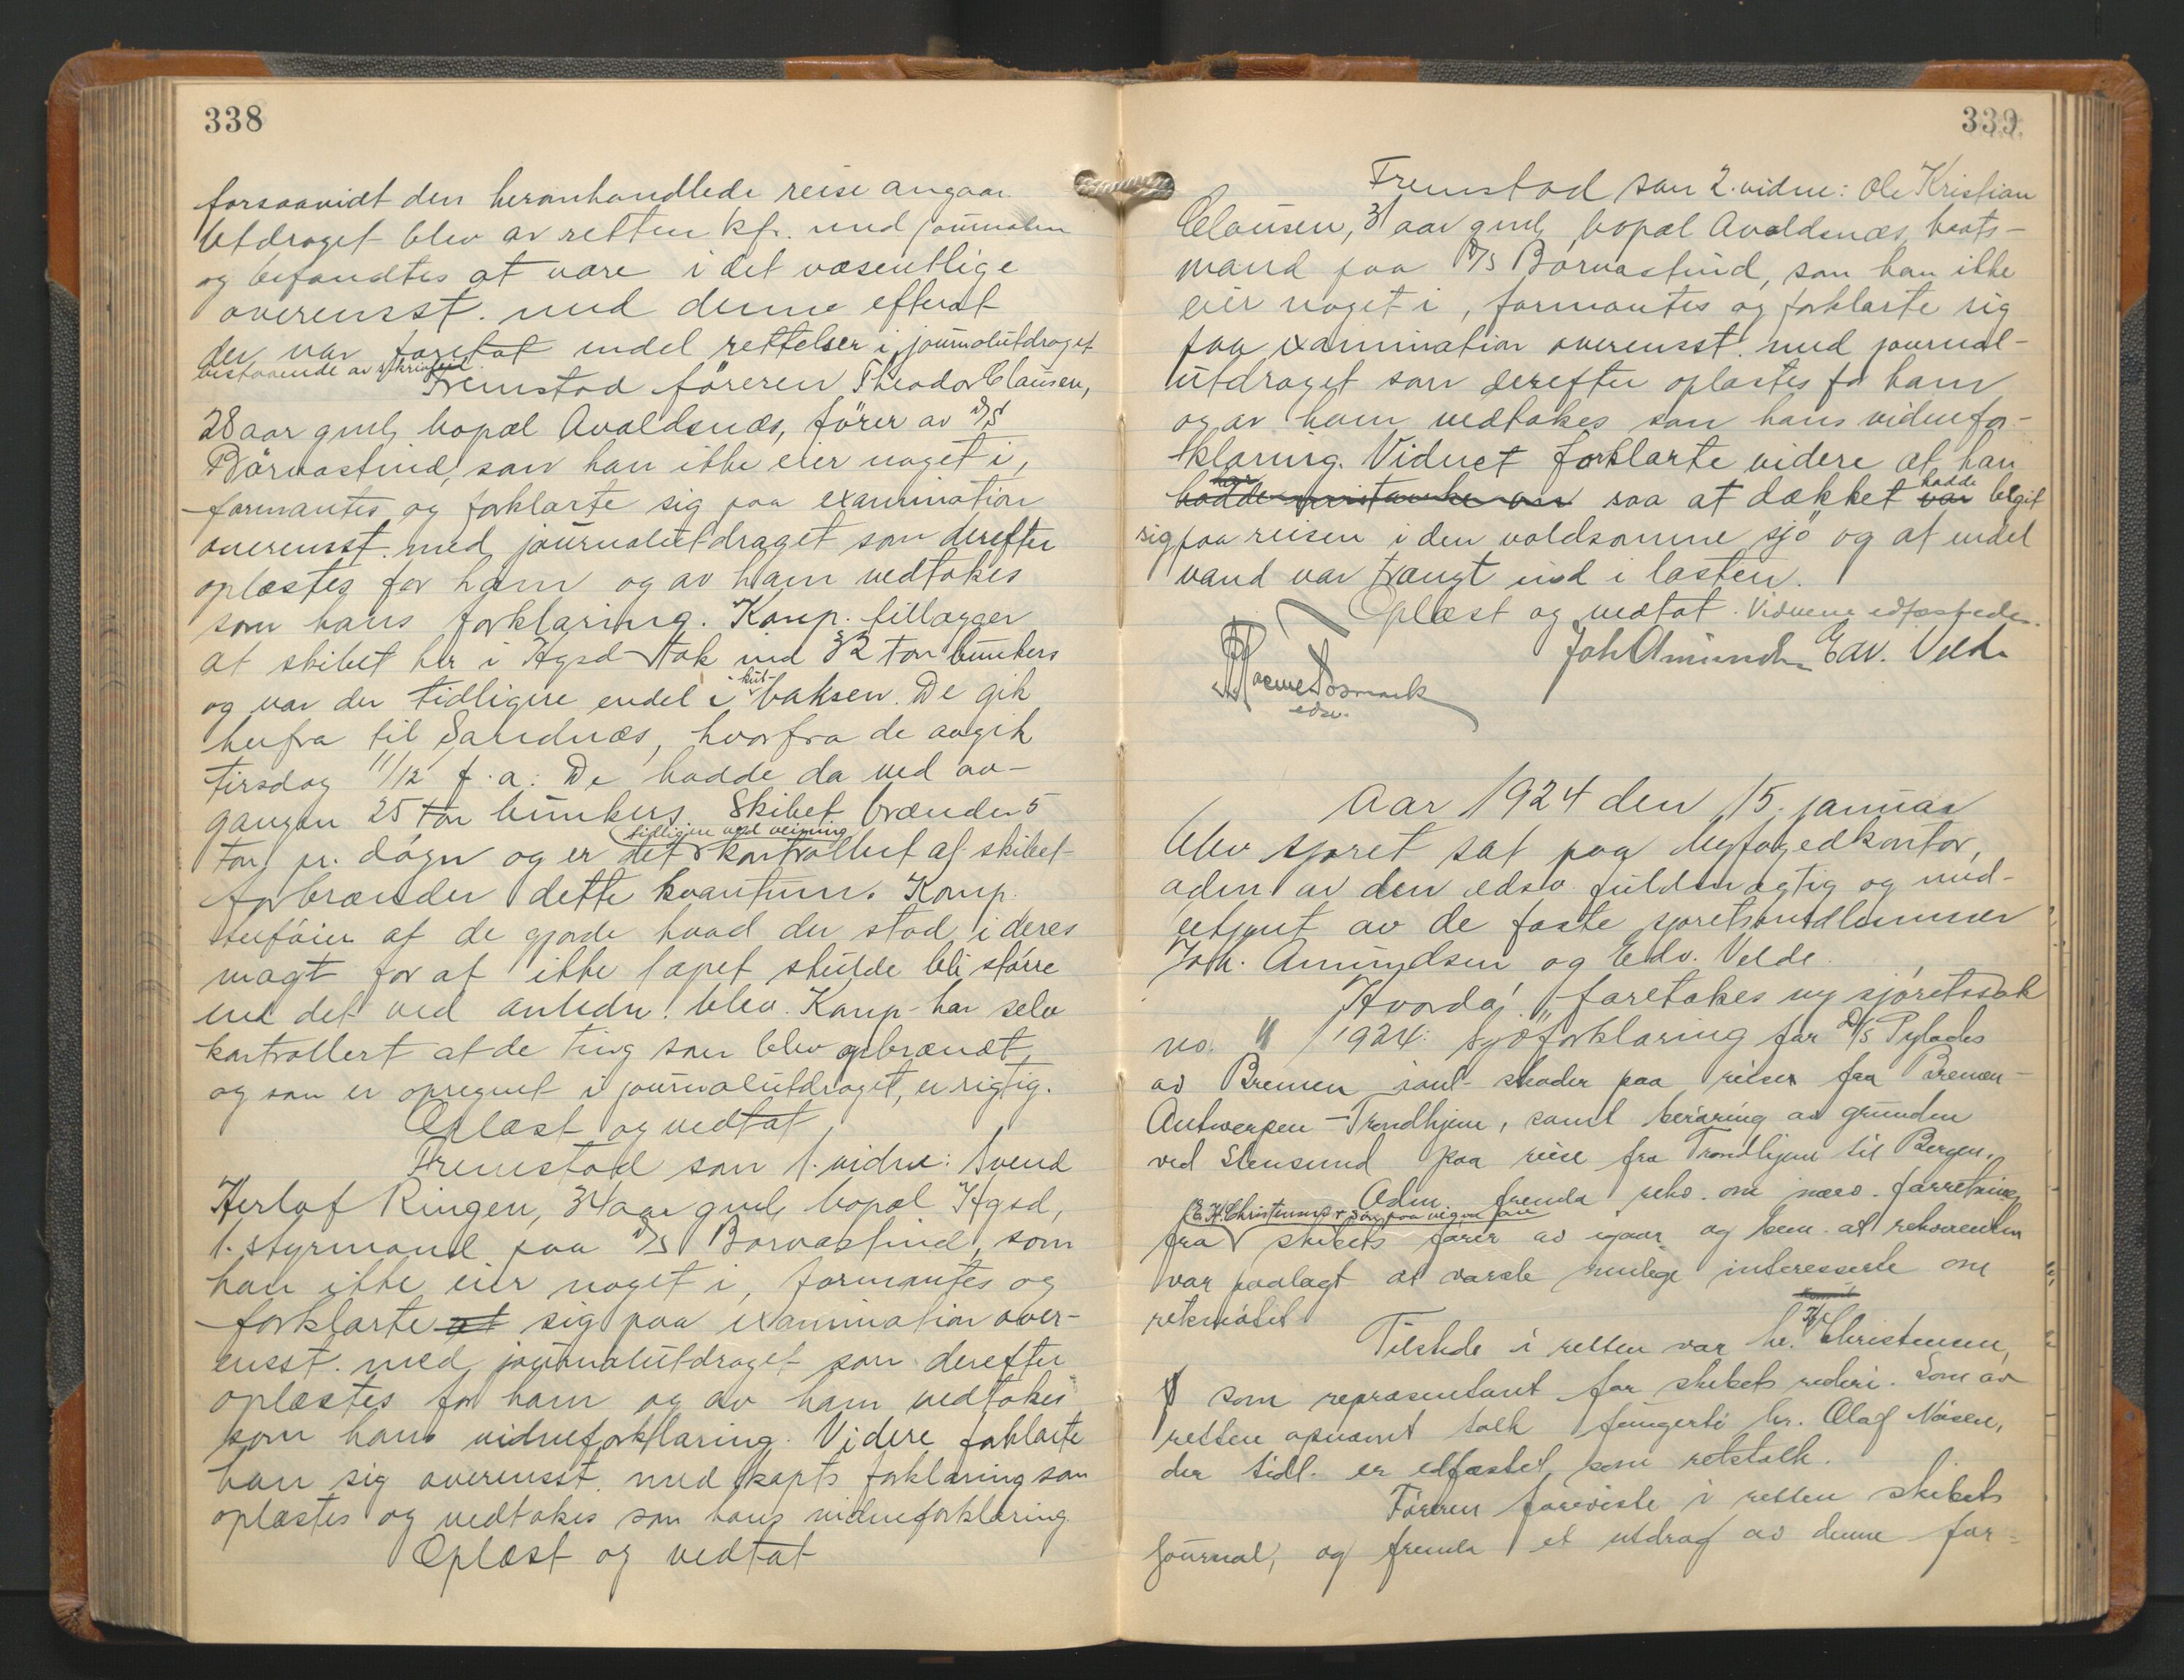 338
forsaavidt den heromhandlede reise angaar.
Utdraget blev av retten kfr. med journalen
og befandtes at være i det væsentlige
overensst. med denne efterat
der var foretat endel rettelser i journalutdraget
bestaaende av skrivfeil.
Fremstod føreren Theodor Clausen,
28 aar gml, bopæl Avaldsnæs, fører av D/S
Børvastind, som han ikke eier noget i,
formantes og forklarte sig paa examination
overensst. med journalutdraget som derefter
oplæstes for ham og av ham vedtokes
som hans forklaring. Komp. tillægger
at skibet her i Hgsd tok ind 32 ton bunkers
og var der tidligere endel i kulboksen. De gik
herfra til Sandnæs, hvorfra de avgik
tirsdag 11/12 f. a. De hadde da ved av-
gangen 25 ton bunkers. Skibet brænder 5
ton pr. døgn og er det tidligere ved veining kontrollert at skibet
forbrænder dette kvantum. Komp.
tilføier at de gjorde hvad der stod i deres
magt for at ikke tapet skulde bli større
end det ved anledn. blev. Komp. har selv
kontrollert at de ting som blev opbrændt,
og som er opregnet i journalutdraget, er rigtig.
Oplæst og vedtat
Fremstod som 1. vidne: Svend
Herlof Ringen, 34 aar gml, bopæl Hgsd,
1. styrmand paa D/S Børvastind, som
han ikke eier noget i, formantes og
forklarte at sig paa examination over-
ensst. med journalutdraget som derefter
oplæstes for ham og av ham vedtokes
som hans vidneforklaring. Videre forklarte
han sig overensst. med kapts forklaring som
oplæstes og vedtokes som hans vidneforklaring.
Oplæst og vedtat
339
Fremstod som 2. vidne: Ole Kristian
Clausen, 31 aar gml, bopæl Avaldsnæs, baats-
mand paa D/S Børvastind, som han ikke
eier noget i, formantes og forklarte sig
paa examination overensst. med journal-
utdraget som derefter oplæstes for ham
og av ham vedtokes som hans vidnefor-
klaring. Vidnet forklarte videre at han
hadde saa at dækket var hadde begit
sig paa reisen i den voldsomme sjø og at endel
vand var trængt ind i lasten.
Oplæst og vedtat. Vidnene edfæstede.
Joh Amundsen Edv. Velde
edsv.
Aar 1924 den 15. januar
blev sjøret sat paa byfogedkontor,
adm. av den edsv. fuldmægtig og med-
betjent av de faste sjøretsmedlemmer
Joh. Amundsen og Edv. Velde.
Hvorda: foretokes ny sjøretssak
no. " / 1924: Sjøforklaring for D/S Pylades
av Bremen i anl. skader paa reisen fra Bremen-
Antwerpen-Trondhjem, samt berøring av grunden
ved Stensund paa reise fra Trondhjem til Bergen.
Adm. fremla rekv. om nærv. forretning
fra skibets fører av igaar og bem. at rekvirenten
var paalagt at varsle mulige interesserte om
retsmøtet
Tilstede i retten var hr. Christensen,
som repræsentant for skibets rederi. Som av
retten opnævnt tolk fungerte hr. Olaf Næsen,
der tidl. er edfæstet som retstolk.
Føreren foreviste i retten skibets
journal, og fremla et utdrag av denne for-